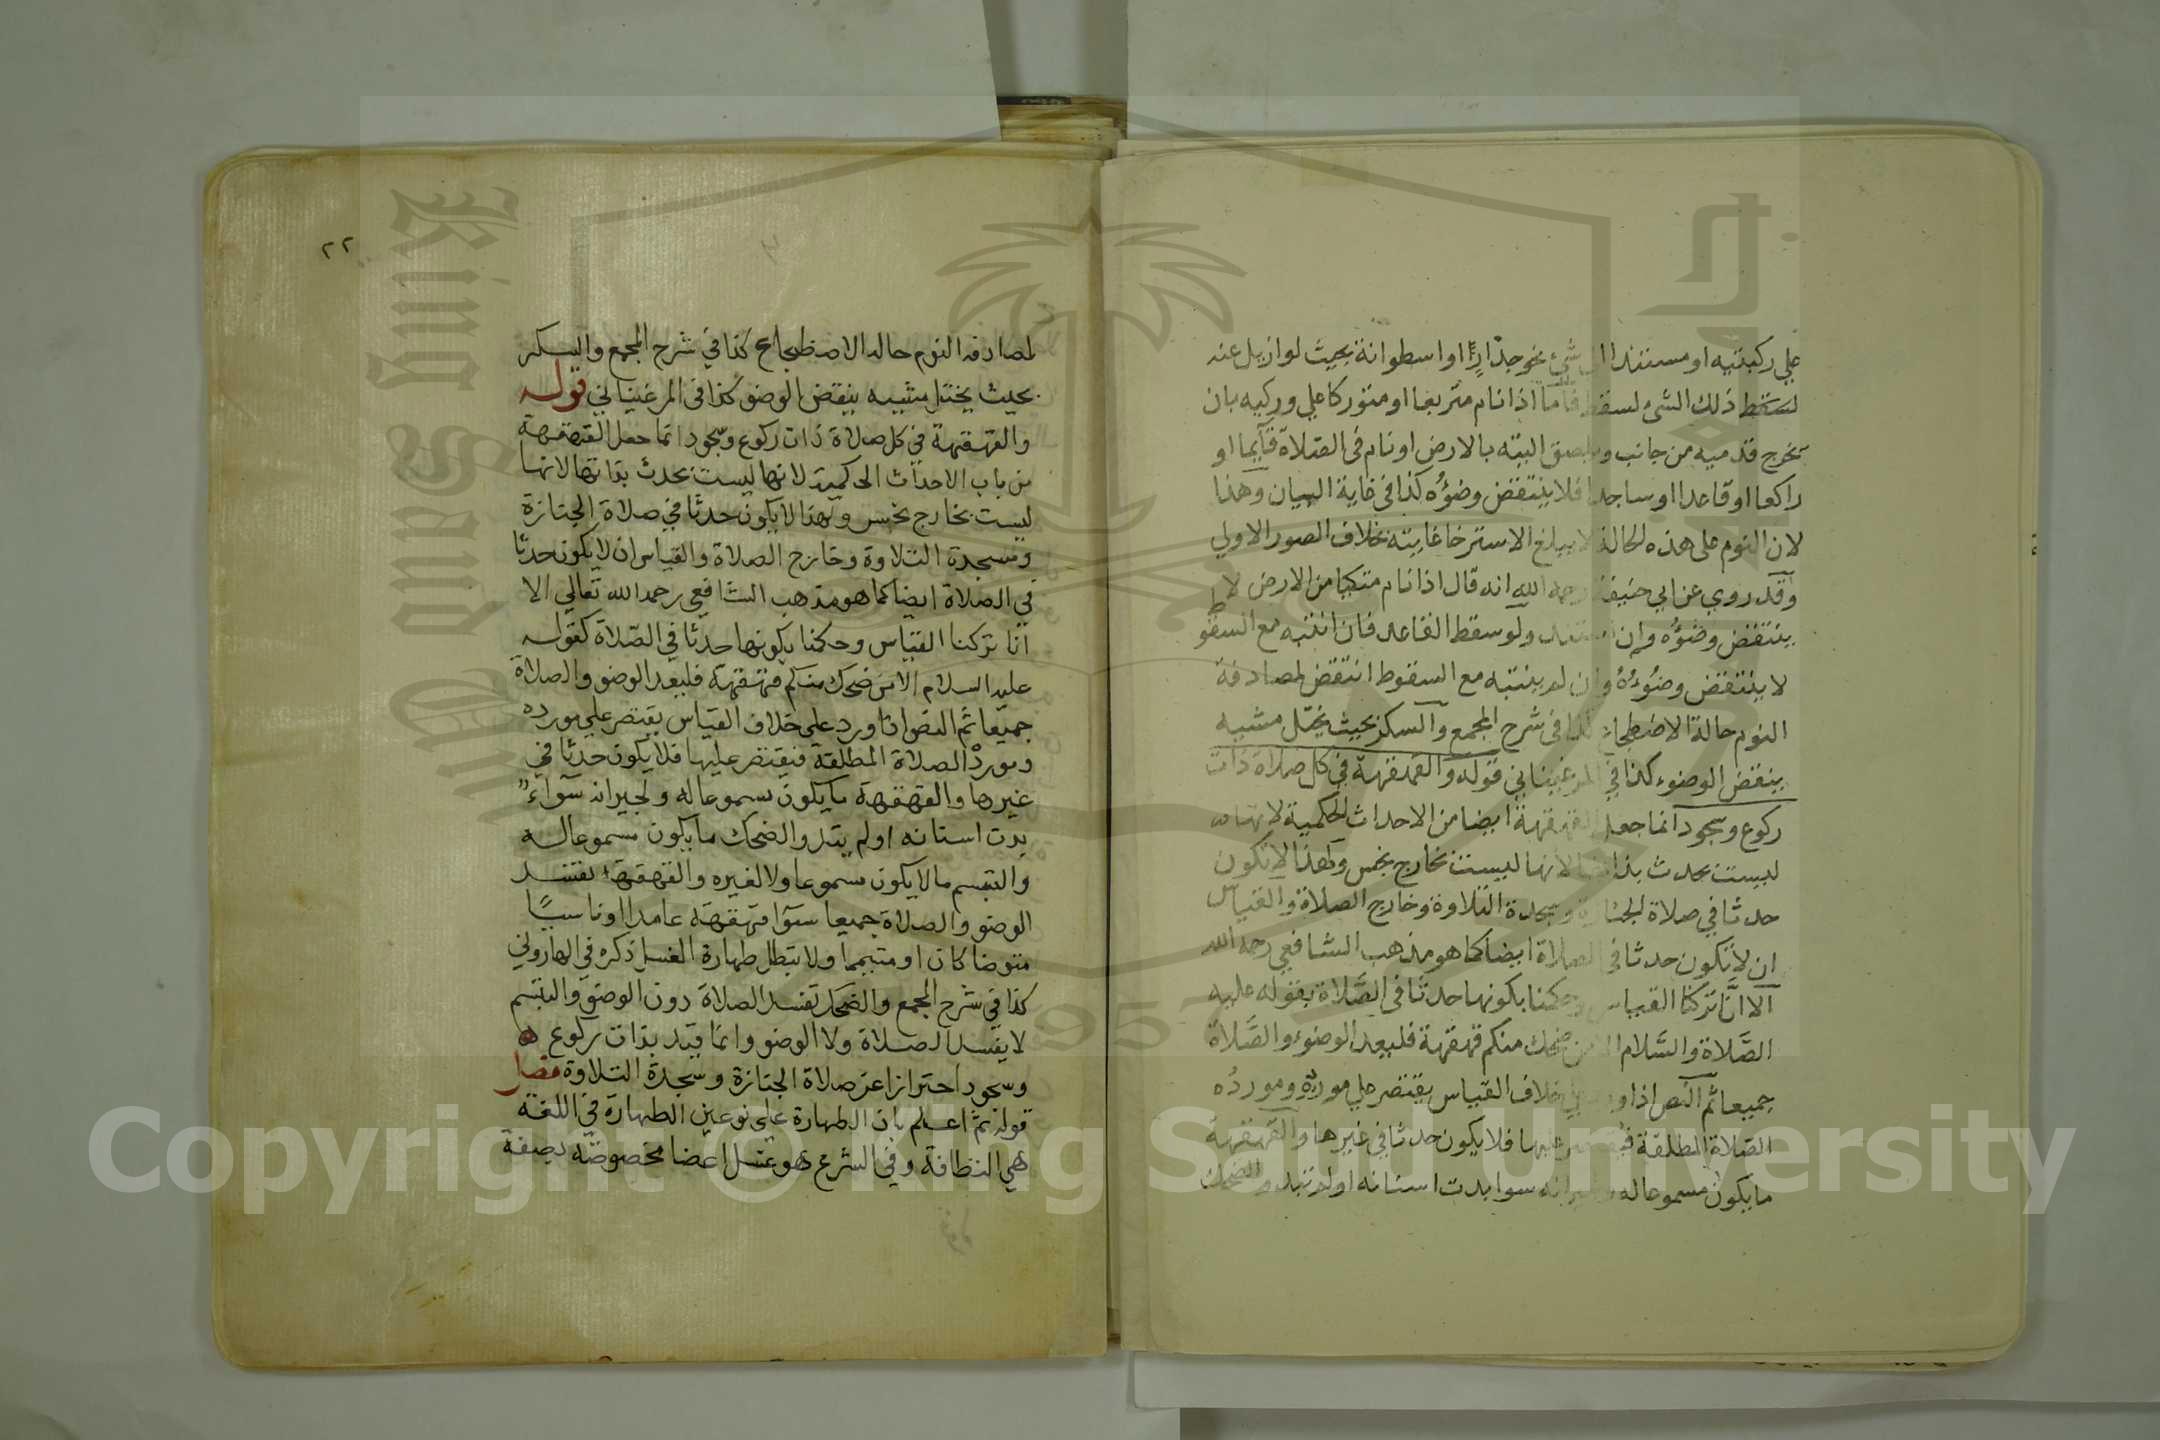 على ركبتيه او مستندا الى شئ نحو جدارا او اسطوانة بحيث لو ازيل عنه
لسقط ذلك الشئ لسقط فاما اذا نام متربعا او متوركا على وركيه بان
تخرج قدميه من جانب ويلصق اليته بالارض او نام في الصلاة قائما او
راكعا او قاعدا او ساجدا فلا ينتقض وضؤه كذا في غاية البيان وهذا
لان النوم على هذه الحالة لا يبلغ الاسترخا غايته بخلاف الصور الاولى
وقد روي عن ابي حنيفة رحمه الله انه قال اذا نام متكيا من الارض لا
ينتقض وضؤه وان ولو سقط القاعد فان انتبه مع السقو
لا ينتقض وضوءه وان لم ينتبه مع السقوط انتقض لمصادفة
النوم حالة الاضطجاع كذا في شرح المجمع والسكر بحيث يختل مشيه
ينقض الوضوء كذا في المرغيناني قوله والقهقهة في كل صلاة ذات
ركوع وسجود انما جعل القهقهة ايضا من الاحداث الحكمية لانها
ليست بحدث بذاتها لانها ليست بخارج نجس ولهذا لا تكون
حدثا في صلاة الجنازة وسجدة التلاوة وخارج الصلاة والقياس
ان لا تكون حدثا في الصلاة ايضا كما هو مذهب الشافعي رحمه الله
الا انا تركنا القياس وحكمنا بكونها حدثا في الصلاة بقوله عليه
الصلاة والسلام الا من ضحك منكم قهقهة فليعد الوضوء والصلاة
جميعا ثم النص اذا ورد على خلاف القياس يقتصر على مورده ومورده
الصلاة المطلقة فيقتصر عليها فلا يكون حدثا في غيرها والقهقهة
ما يكون مسموعا له ولجيرانه سوا بدت اسنانه او لم تبد والضحك
٢٢
لمصادفه النوم حاله الاضطجاع كذا في شرح المجمع والسكر
بحيث يختل مشيه ينقض الوضو كذا في المرغيناني قوله
والقهقهة في كل صلاة ذات ركوع وسجود انما جعل القهقهة
من باب الاحداث الحكمية لانها ليست بحدث بذاتها لانها
ليست بخارج نجس ولهذا لا يكون حدثا في صلاة الجنازة
وسجدة التلاوة وخارج الصلاة والقياس ان لا يكون حدثا
في الصلاة ايضا كما هو مذهب الشافعي رحمه الله تعالى الا
انا تركنا القياس وحكمنا بكونها حدثا في الصلاة كقوله
عليه السلام الا من ضحك منكم قهقهة فليعد الوضو والصلاة
جميعا ثم النص اذا ورد على خلاف القياس يقتصر على مورده
ومورد الصلاة المطلقة فيقتصر عليها فلا يكون حدثا في
غيرها والقهقهة ما يكون مسموعا له ولجيرانه سواء
بدت اسنانه او لم يبد والضحك ما يكون مسموعا له
والتبسم ما لا يكون مسموعا ولا لغيره والقهقهة تفسد
الوضو والصلاة جميعا سوا قهقهة عامدا او ناسيا
متوضا كان او متيمما ولا تبطل طهارة الغسل ذكره في الهاروني
كذا في شرح المجمع والضحك تفسد الصلاة دون الوضو والتبسم
لا يفسد الصلاة ولا الوضو وانما قيد بذات ركوع
وسجود احترازا عن صلاة الجنازة وسجدة التلاوة فصل
قوله ثم اعلم بان الطهارة على نوعين الطهارة في اللغة
هي النظافة وفي الشرع هو غسل اعضا مخصوصة بصفة
Copyright © King Saud University
King Saud University
1957